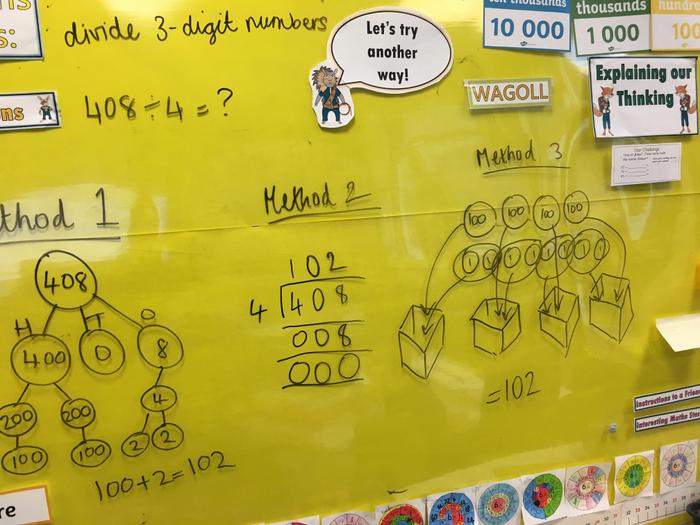 divide 3-digit numbers
408÷4=?
Let's try
another
way!
10 000
thousands
1 000
100
WAGOLL
Explaining our
Thinking
Method 1
408
H T O
400 0 8
200 200 4
100 100 2 2
100+2=102
Method 2
102
4 408
008
000
Method 3
100 100 100 100
1 1 1 1 1 1 1 1
=102
Instructions to a Friend
Interesting Maths